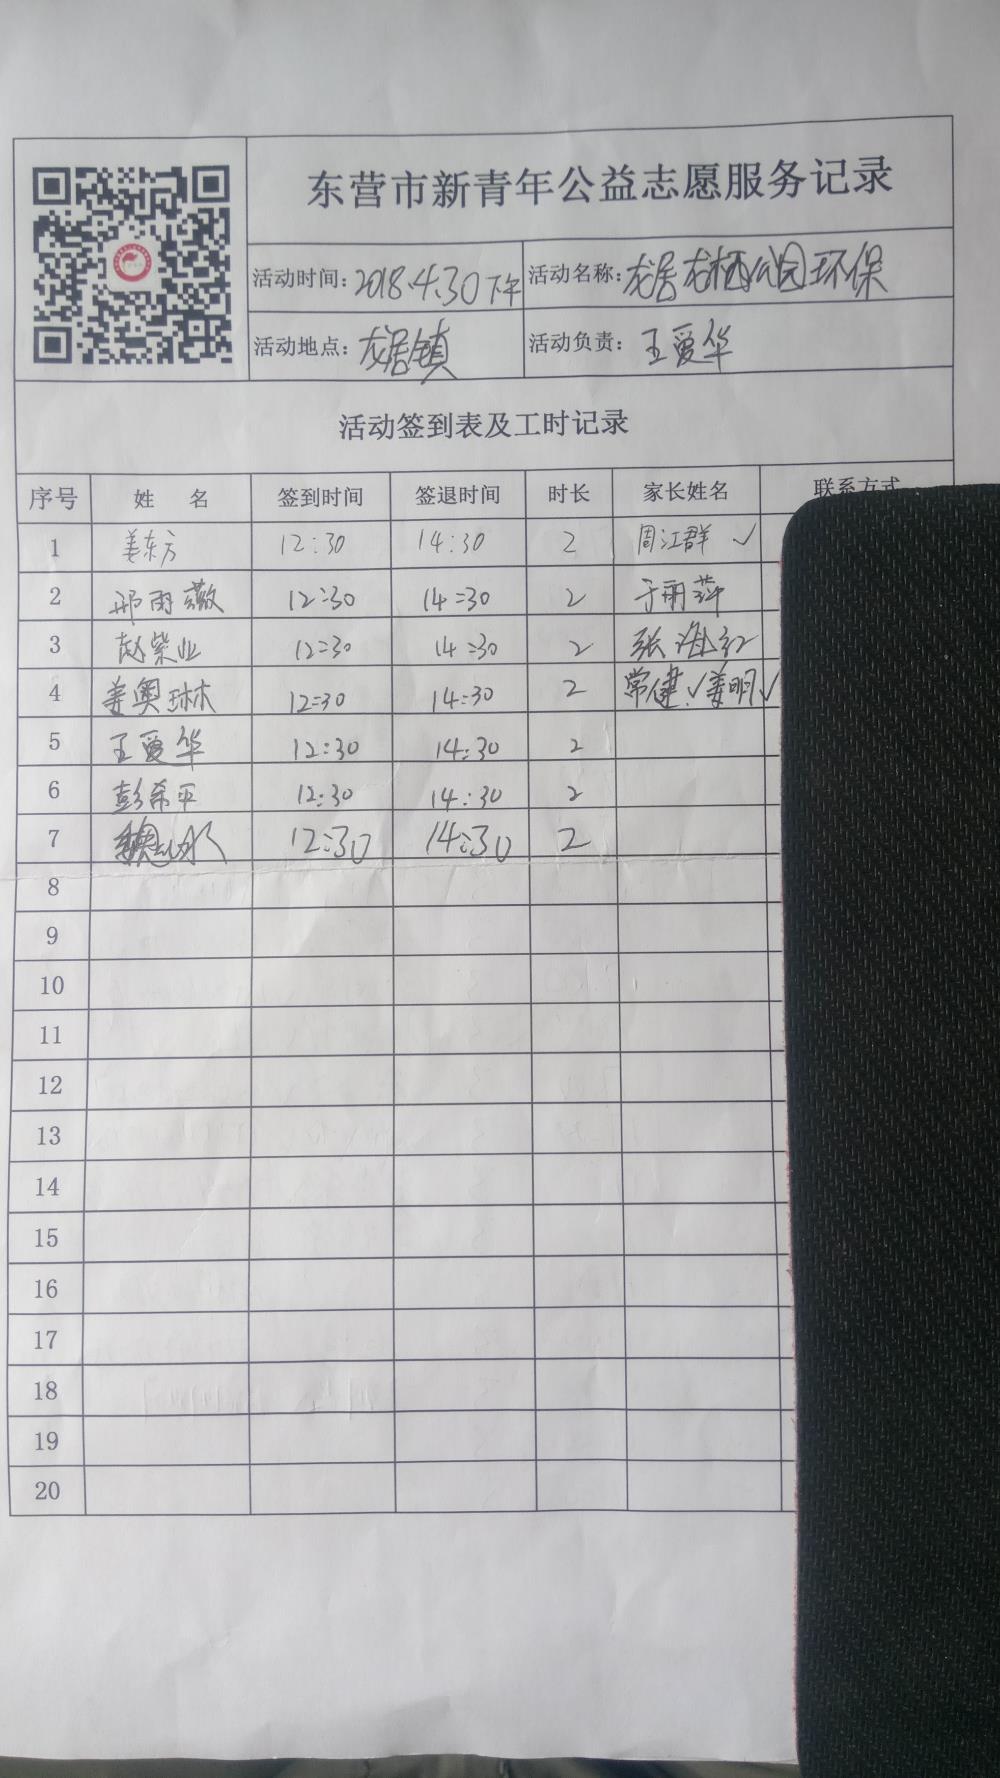 东营市新青年公益志愿服务记录
活动时间：2018.4.30下午 活动名称：龙居龙栖公园环保
活动地点：龙居镇 活动负责：王爱华
活动签到表及工时记录
序号 姓 名 签到时间 签退时间 时长 家长姓名 联系方式
1 姜东方 12:30 14:30 2 周江群 ✓
2 邢雨薇 12:30 14:30 2 于丽萍
3 赵紫业 12:30 14:30 2 张海红
4 姜奥琳 12:30 14:30 2 常健✓姜明✓
5 王爱华 12:30 14:30 2
6 彭希平 12:30 14:30 2
7 12:30 14:30 2
8
9
10
11
12
13
14
15
16
17
18
19
20